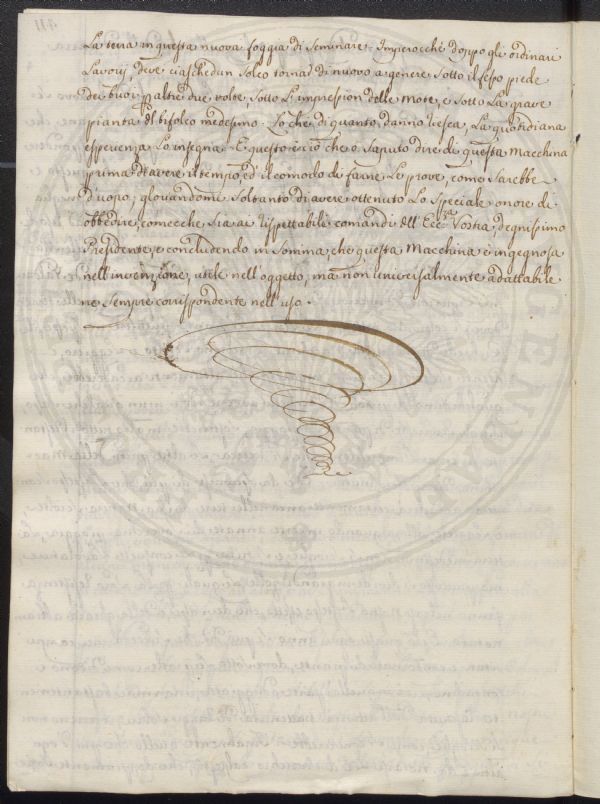 La terra in questa nuova foggia di Seminare. Imperocchè doppo gli ordinarj
Lavorij, deve ciaschedun Solco tornar di nuovo a gemere Sotto il fesso piede
dei buoi p altre due volte, Sotto L'impression delle rote, e Sotto La grave
pianta del bifolco medesimo. Lo che di quanto danno riesca, La quotidiana
esperienza Lo insegna. E questo è ciò che o Saputo dire di questa Macchina
prima d'avere il tempo, ed il comodo di farne Le prove, come Sarebbe
d'uopo; giovandomi Soltanto di avere ottenuto Lo Speciale onore di
obbedire, comecche Sia ai rispettabili comandi dell'Ecc.za Vostra, degnissimo
Presidente, e concludendo in Somma, che questa Macchina è ingegnosa
nell'invenzione, utile nell'oggetto, ma non universalmente adattabile
ne Sempre corrispondente nell'uso.